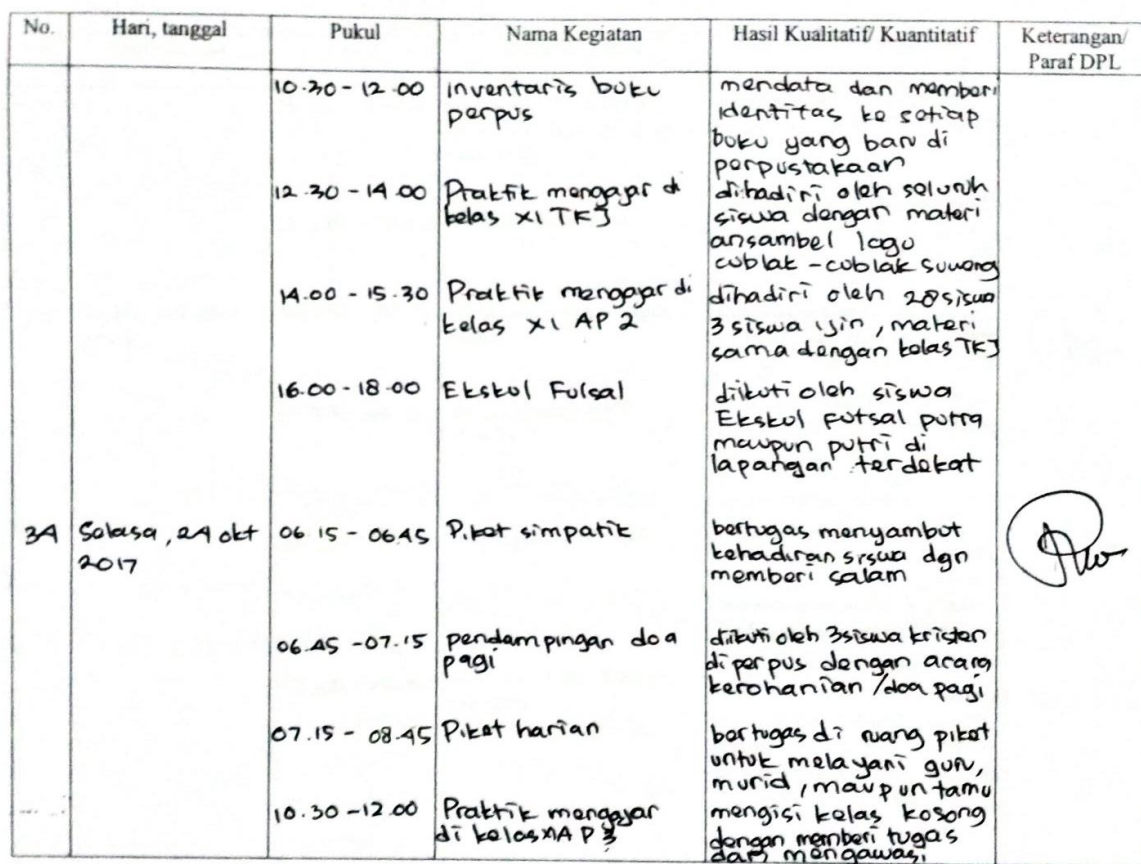 No. Hari, tanggal Pukul Nama Kegiatan Hasil Kualitatif/ Kuantitatif Keterangan/
Paraf DPL
10.30 - 12.00 inventaris buku mendata dan memberi
perpus identitas ke setiap
buku yang baru di
perpustakaan
12.30 - 14.00 Praktik mengajar di dihadiri oleh seluruh
kelas XI TKJ siswa dengan materi
ansambel lagu
cublak - cublak suweng
14.00 - 15.30 Praktik mengajar di dihadiri oleh 28 siswa
kelas XI AP 2 3 siswa ijin, materi
sama dengan kelas TKJ
16.00 - 18.00 Ekskul Futsal diikuti oleh siswa
Ekskul Futsal putra
maupun putri di
lapangan terdekat
34 Selasa, 24 okt 06.15 - 06.45 Piket simpatik bertugas menyambut
2017 kehadiran siswa dgn
memberi salam
06.45 - 07.15 pendampingan doa diikuti oleh 3 siswa kristen
pagi di perpus dengan acara
kerohanian / doa pagi
07.15 - 08.45 Piket harian bertugas di ruang piket
untuk melayani guru,
murid, maupun tamu
10.30 - 12.00 Praktik mengajar mengisi kelas kosong
di kelas AP 3 dengan memberi tugas
dan mengawasi